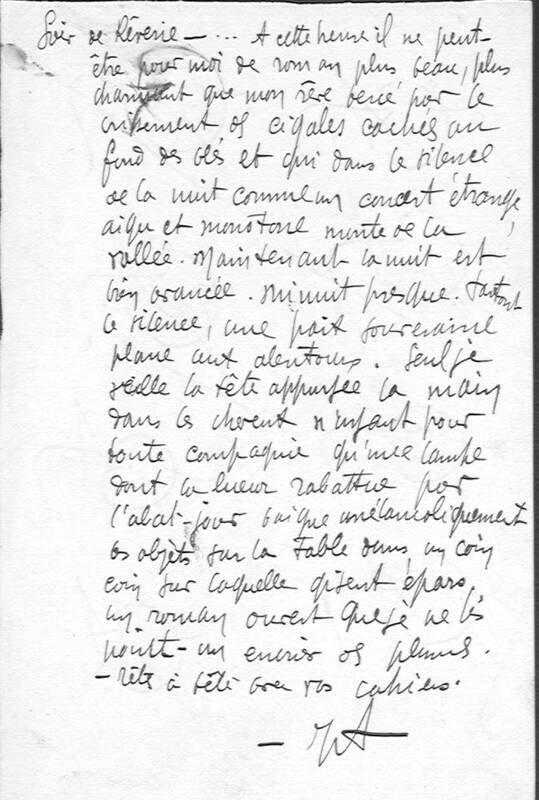 Soir de Rêverie — ... A cette heure il ne peut-
être pour moi de roman plus beau, plus
charmant que mon rêve bercé par le
crissement des cigales cachés au
fond des blés et qui dans le silence
de la nuit comme un concert étrange,
aigu et monotone monte de la
vallée. Maintenant la nuit est
bien avancée. Minuit presque. Partout
le silence, une paix souveraine
plane aux alentours. Seul je
veille la tête appuyée la main
dans les cheveux n'ayant pour
toute compagnie qu'une lampe
dont la lueur rabattue par
l'abat-jour baigne mélancoliquement
les objets sur la table dans un coin
coin sur laquelle gisent épars,
un roman ouvert que je ne lis
point — un encrier des plumes.
— tête à tête avec vos cahiers.